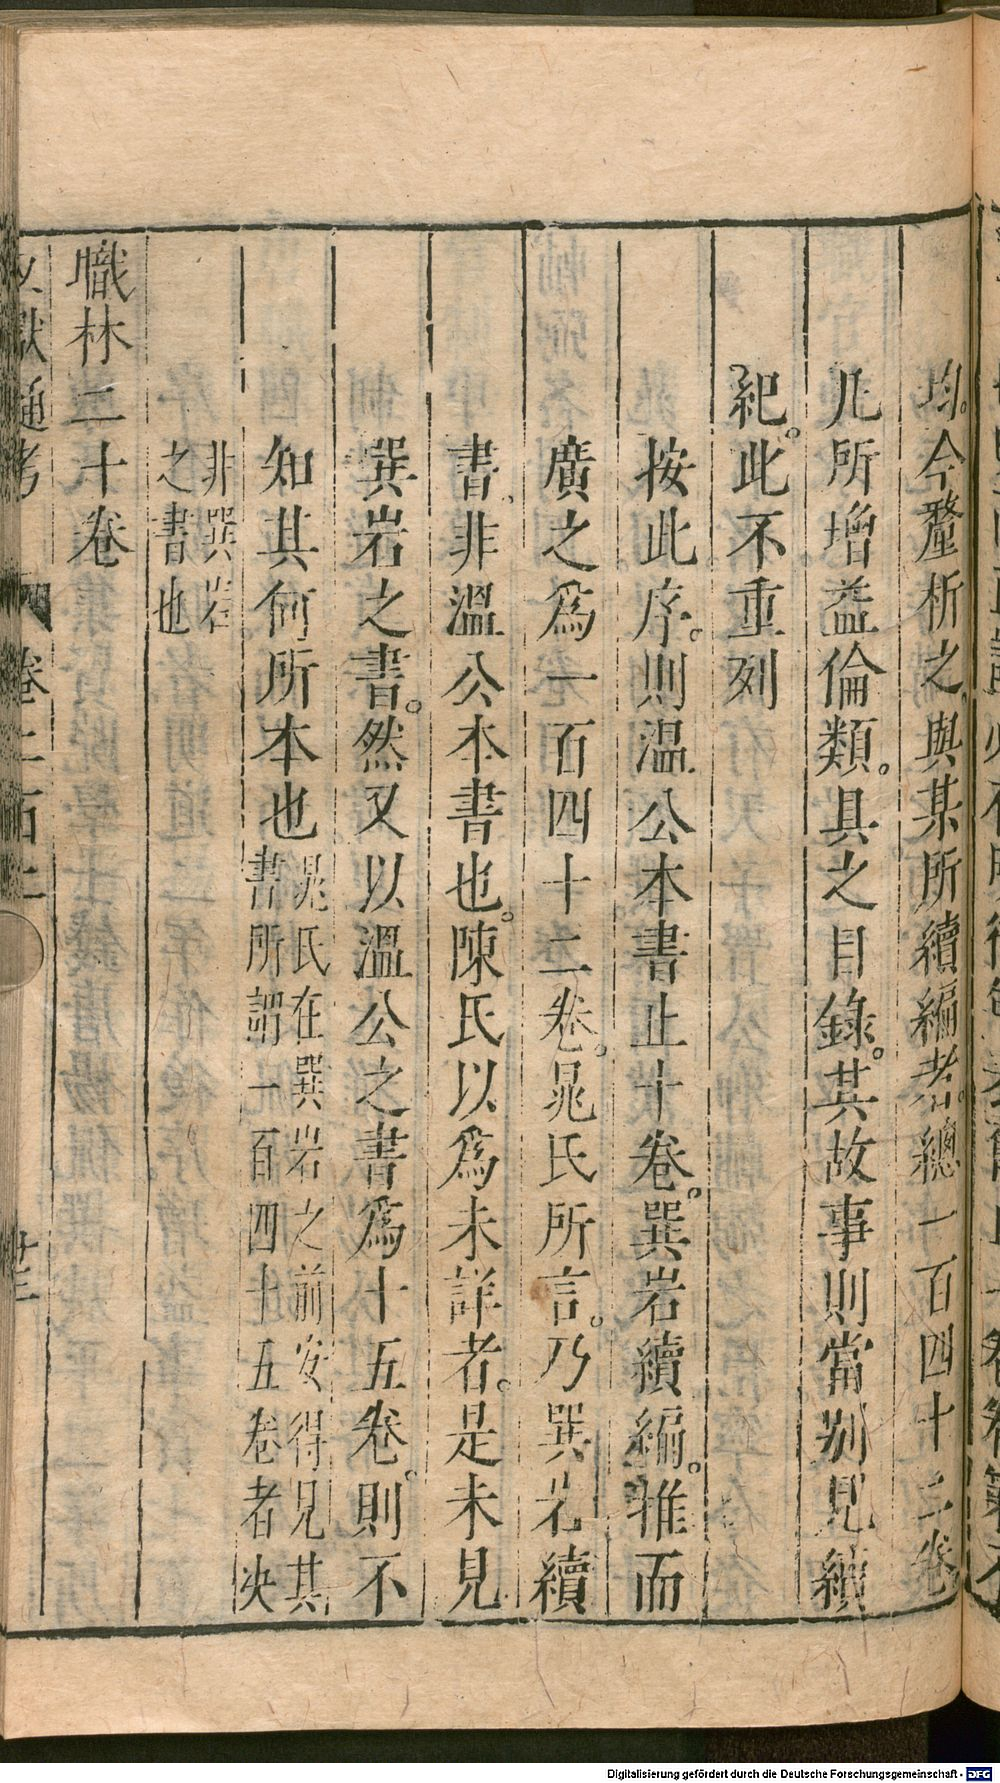 均。今釐析之。與某所續編者。總一百四十二卷
凡所增益倫類。具之目錄。其故事則當别見續
紀。此不重列
按此序。則溫公本書止十卷。巽岩續編。推而
廣之爲一百四十二卷。晁氏所言。乃巽岩續
書。非溫公本書也。陳氏以爲未詳者。是未見
巽岩之書。然又以溫公之書爲十五卷。則不
知其何所本也
晁氏在巽岩之前安得見其
書所謂一百四十五卷者决
非巽岩
之書也
職林二十卷
文獻通考 卷二百二 廿三
Digitalisierung gefördert durch die Deutsche Forschungsgemeinschaft - DFG